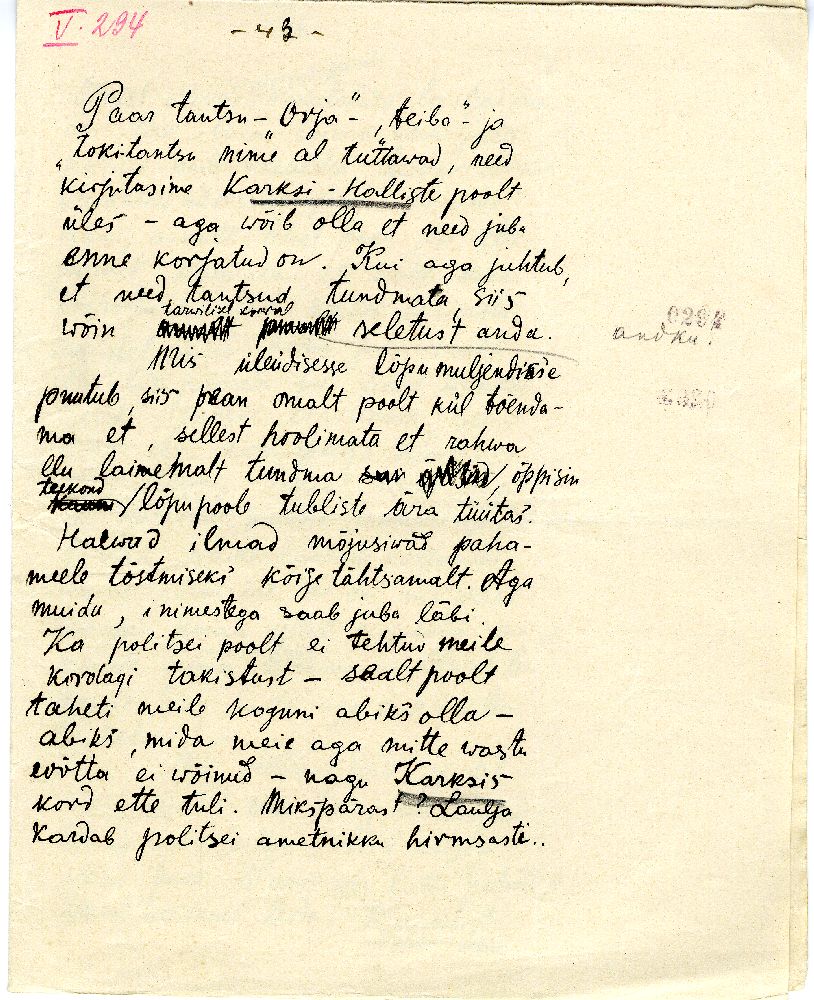 V. 294
- 43 -
Paar tantsu - Orja" -, "teiba" - ja
"tokitantsu nime" al tuttawad, need
kirjutasime Karksi - Halliste poolt
üles - aga wõib olla et need juba
enne korjatud on. Kui aga juhtub,
et need tantsud tundmata, siis
tarwilisel korral
wõin seletust anda. andku!
Mis üleüdisesse lõpumuljendisse
puutub, siis pean omalt poolt kül tõenda-
ma et, sellest hoolimata et rahwa
elu laiemalt tundma õppisin
teekond
/ lõpupoole tubliste ära tüütas.
Halwad ilmad mõjusiwad paha-
meele tõstmiseks kõige tähtsamalt. Aga
muidu, inimestega saab juba läbi.
Ka politsei poolt ei tehtud meile
kordagi takistust - sealt poolt
taheti meile koguni abiks olla -
abiks, mida meie aga mitte wastu
wõtta ei wõinud - nagu Karksis
kord ette tuli. Mikspärast? Laulja
kardab politsei ametnikku hirmsasti..